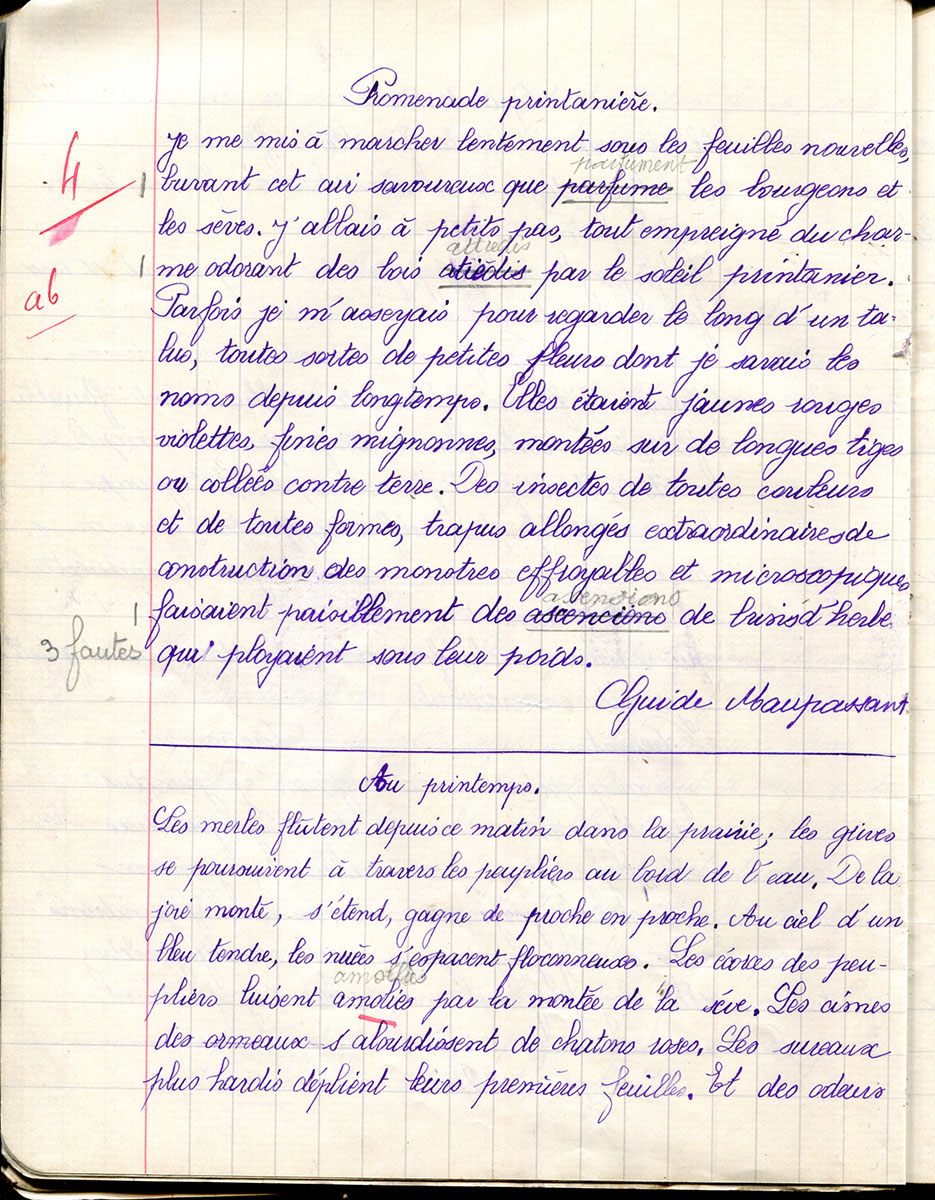 Promenade printanière.
Je me mis à marcher lentement sous les feuilles nouvelles,
4
parfument
buvant cet air savoureux que parfume les bourgeons et
les sèves. J'allais à petits pas, tout empreigné du char-
attiédis
me odorant des bois atiédis par le soleil printanier.
ab
Parfois je m'asseyais pour regarder le long d'un ta-
lus, toutes sortes de petites fleurs dont je savais les
noms depuis longtemps. Elles étaient jaunes rouges
violettes, fines mignonnes, montées sur de longues tiges
ou collées contre terre. Des insectes de toutes couleurs
et de toutes formes, trapus allongés extraordinaires de
construction des monstres effroyables et microscopiques
ascensions
faisaient paisiblement des ascencions de brins d'herbe
3 fautes
qui ployaient sous leur poids.
Guide Maupassant
Au printemps.
Les merles flûtent depuis ce matin dans la prairie; les grives
se poursuivent à travers les peupliers au bord de l'eau. De la
joie monte, s'étend, gagne de proche en proche. Au ciel d'un
bleu tendre, les nuées s'espacent floconneuses. Les écorces des peu-
amollies
pliers luisent amolies par la montée de la sève. Les cimes
des ormeaux s'alourdissent de chatons roses. Les sureaux
plus hardis déplient leurs premières feuilles. Et des odeurs